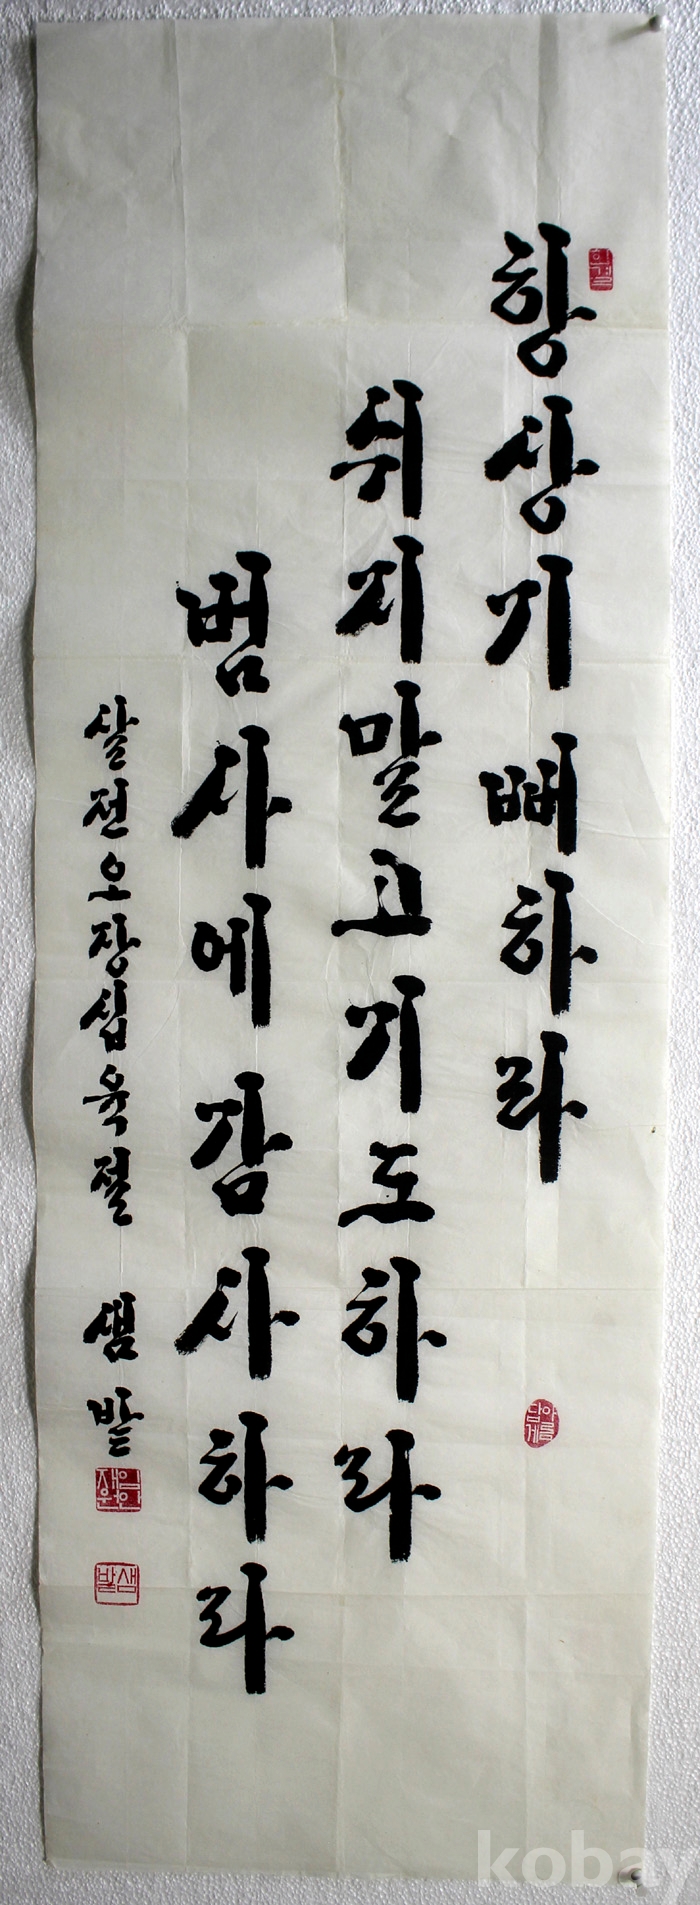 항상기뻐하라
쉬지말고기도하라
범사에감사하라
살전오장십육절 샘밭
아름답게
샘밭
kobay